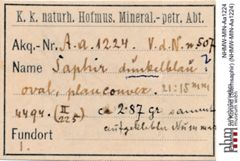 K. k. naturh. Hofmus. Mineral.-petr. Abt.
Akq.-Nr. A.a. 1224. V.d.N. n 507
Name Saphir dunkelblau?
oval, planconvex. 21:18 mm
4494. (II ca 2.87 gr sammt
aufgeklebter Nummer
Fundort
1.
NHMW-MIN-Aa1224
(NHMW-MIN-Aa1224)
nhm